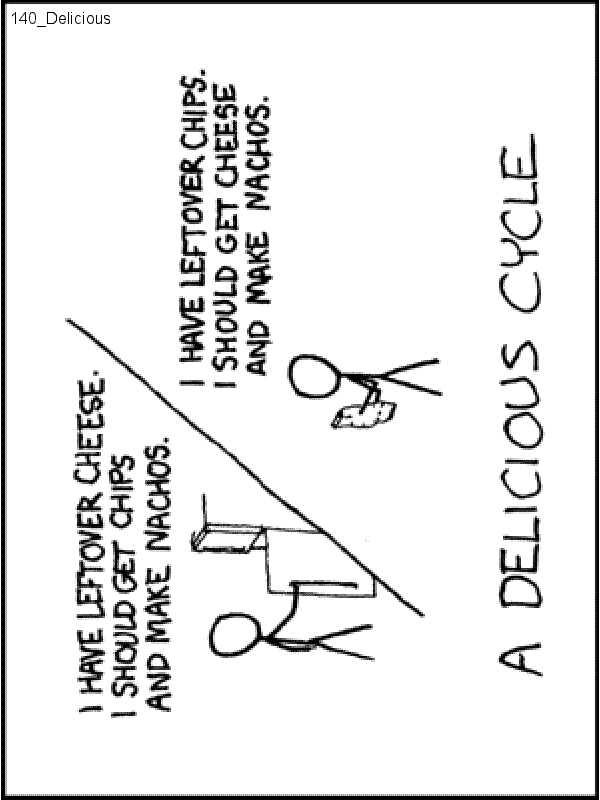 140_Delicious
I HAVE LEFTOVER CHEESE.
I SHOULD GET CHIPS
AND MAKE NACHOS.
I HAVE LEFTOVER CHIPS.
I SHOULD GET CHEESE
AND MAKE NACHOS.
A DELICIOUS CYCLE